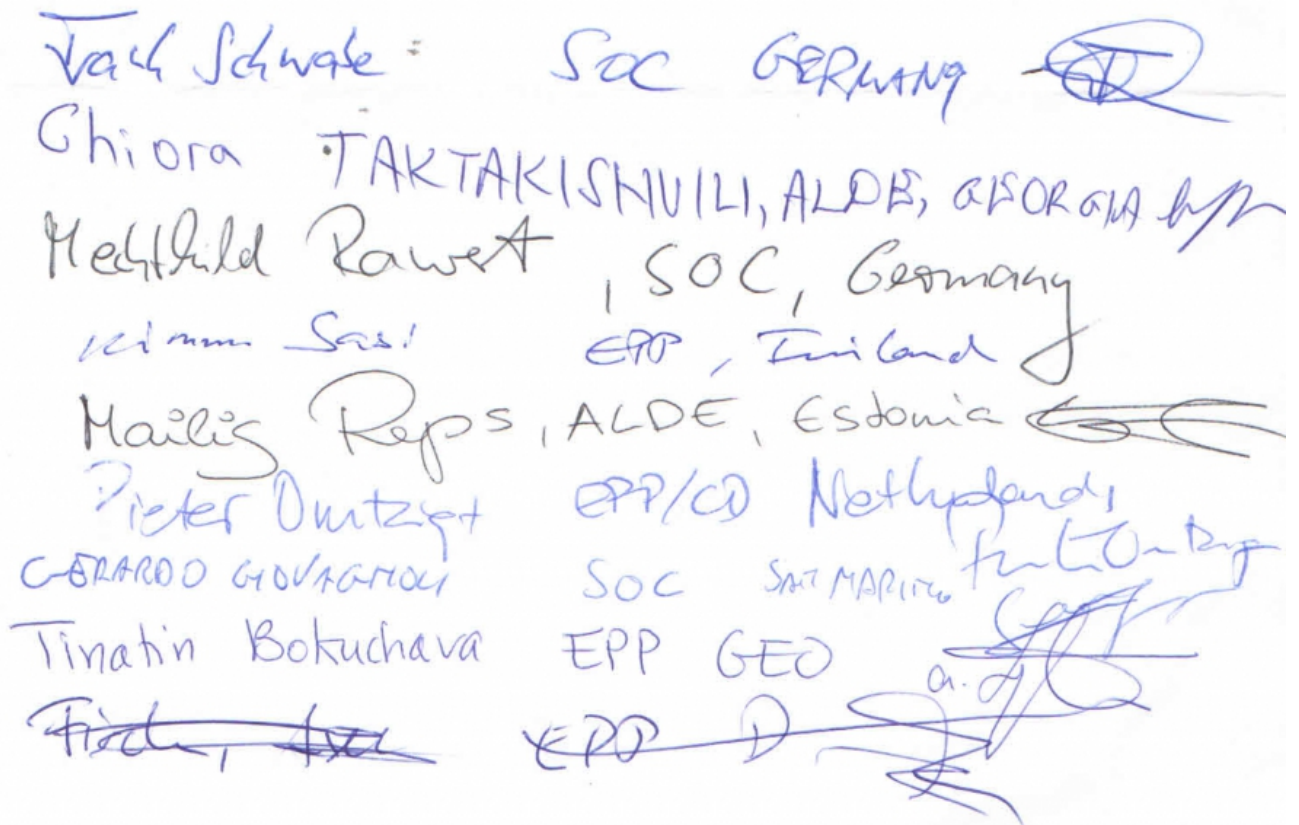 Frank Schwabe SOC GERMANY
Chiora TAKTAKISHVILI, ALDE, GEORGIA
Mechthild Rawert, SOC, Germany
Kimmo Sasi EPP, Finland
Mailis Reps, ALDE, Estonia
Pieter Omtzigt EPP/CD Netherlands
GERARDO GIOVAGNOLI SOC SAN MARINO
Tinatin Bokuchava EPP GEO
EPP D